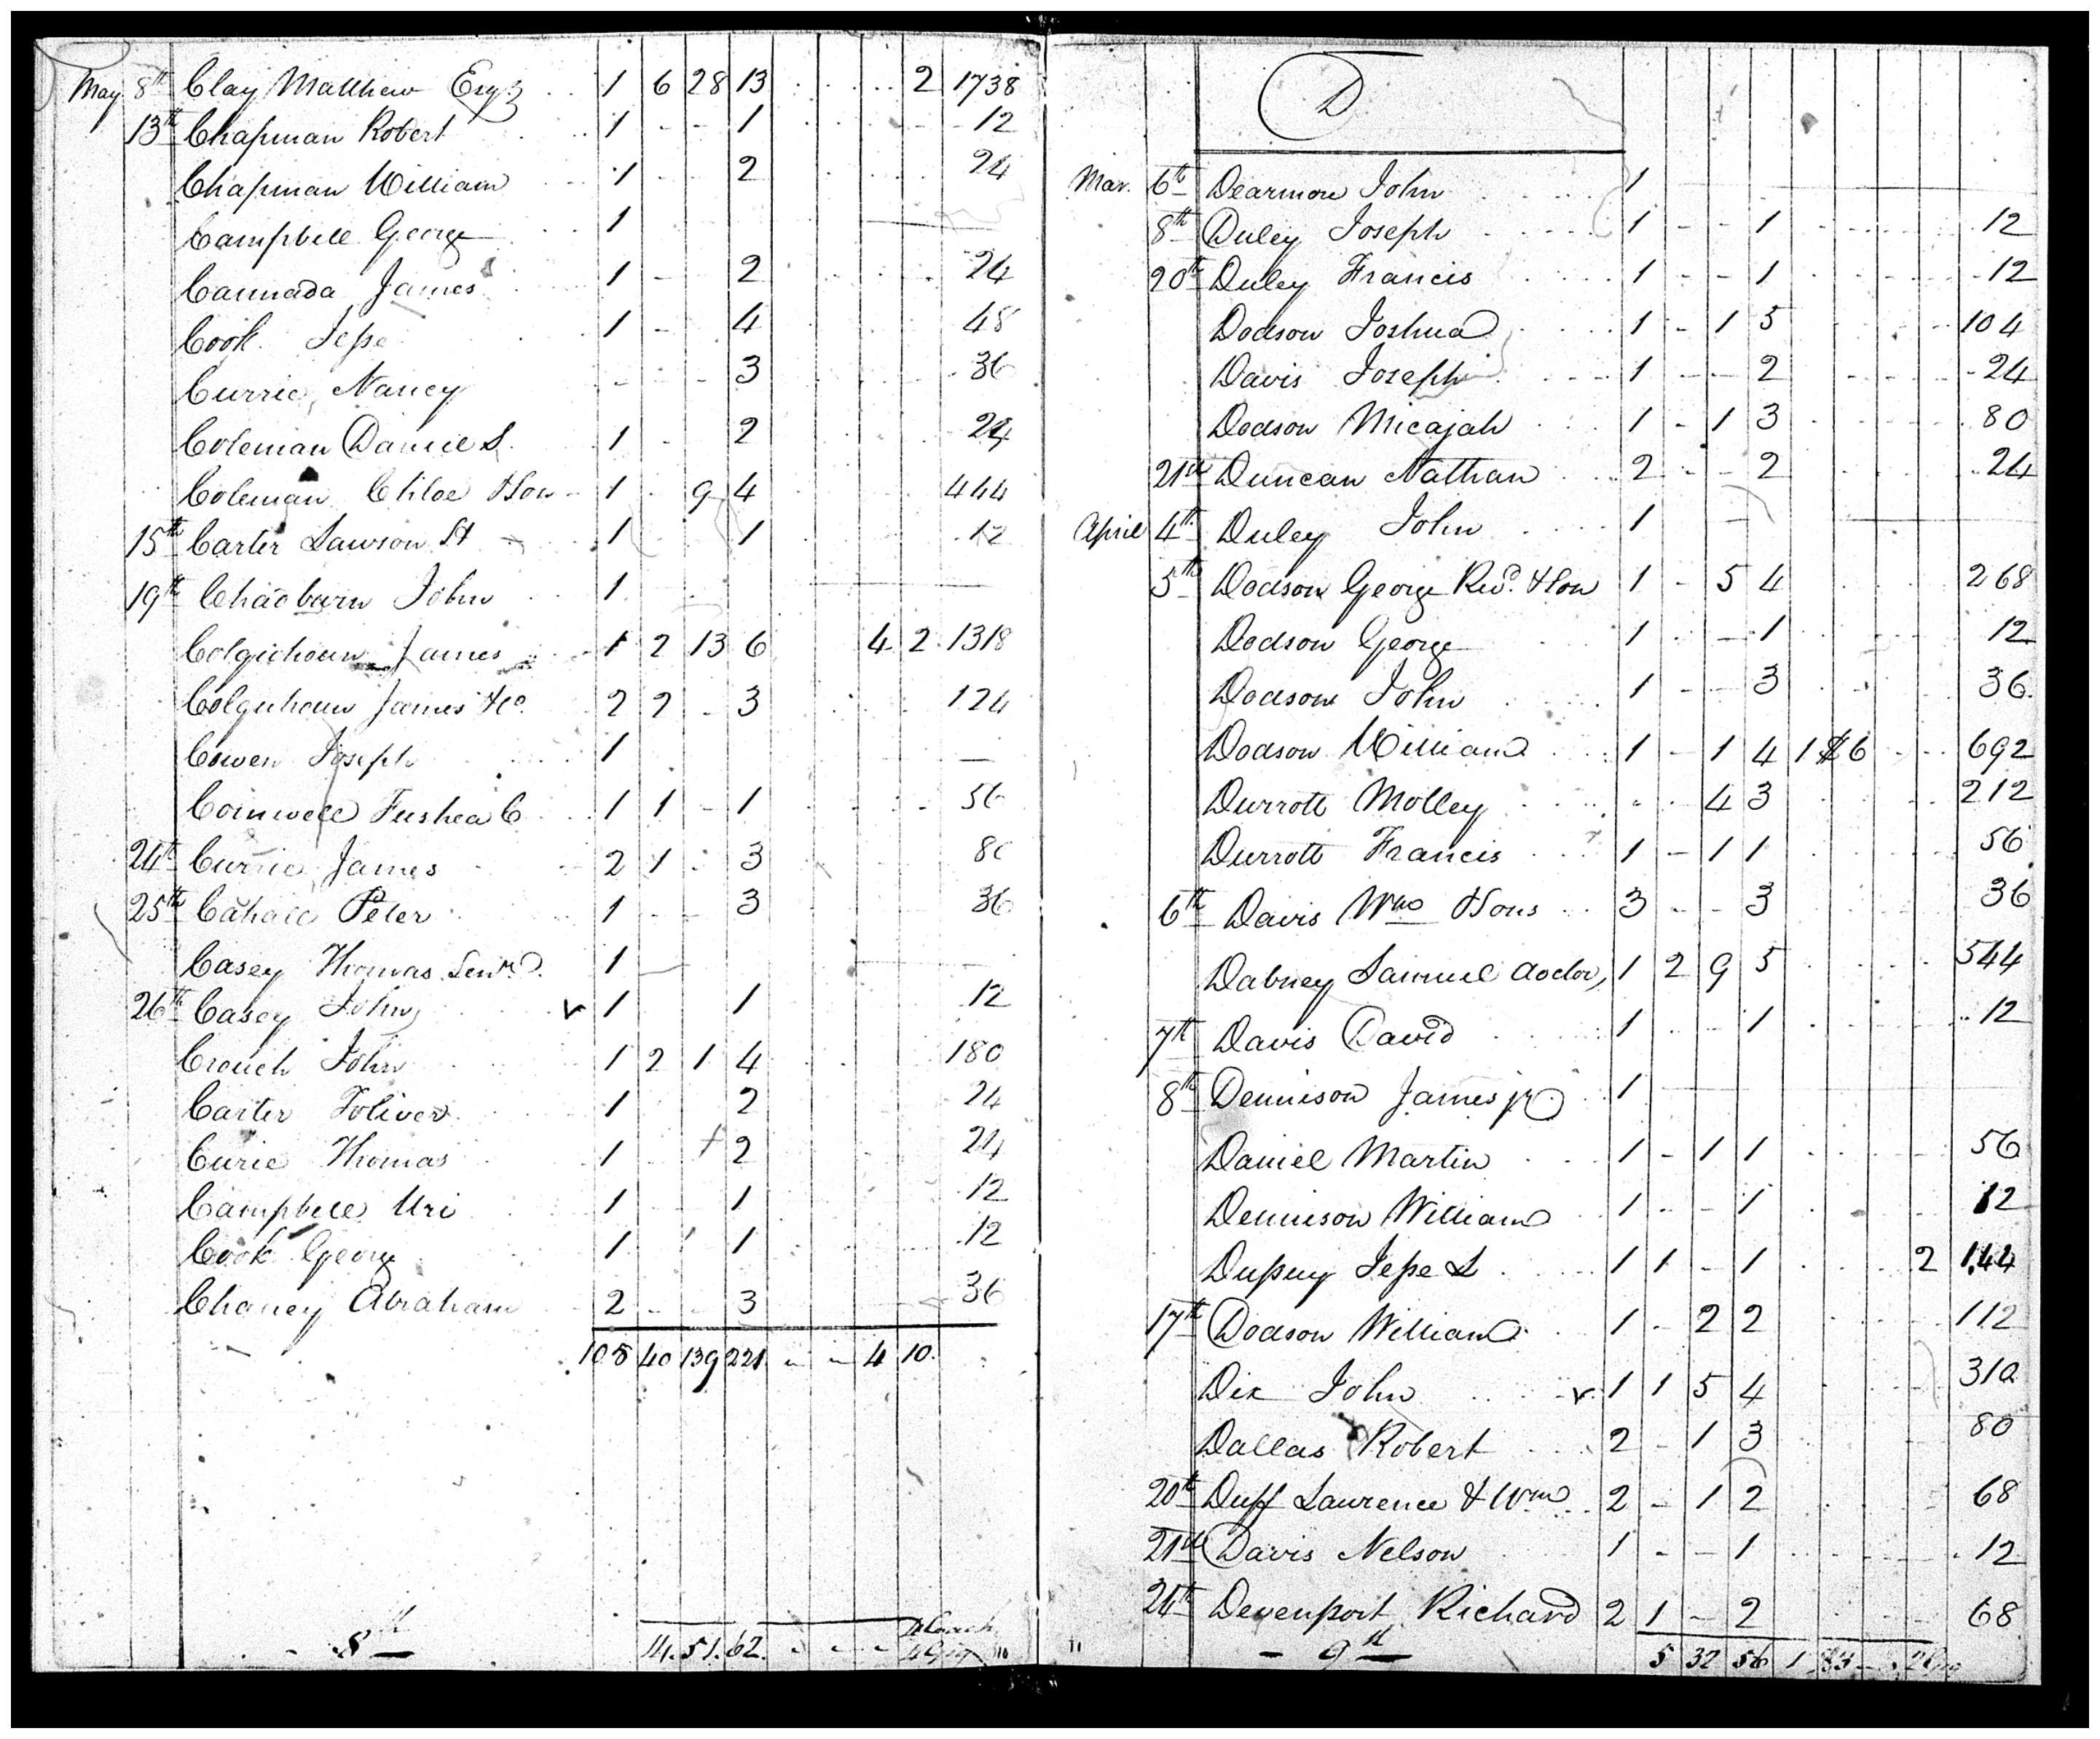 May 8th Clay Matthew Esqr 1 6 28 13 2 1738
13th Chapman Robert 1 - - 1 12
Chapman William 1 - - 2 24
Campbell George 1
Cannada James 1 - 2 24
Cook Jesse 1 - 4 48
Currie, Nancy - - - 3 36
Coleman Daniel S. 1 - 2 24
Coleman Chloe & Son 1 - 9 4 444
15th Carter Lawson St 1 1 12
19th Chadburn John 1
Colquhoun James 1 2 13 6 4 2 1318
Colquhoun James & Co. 2 2 - 3 124
Cowen Joseph 1 —
Cornwell Fushea C 1 1 - 1 56
24th Currie James 2 1 - 3 80
25th Cahall Peter 1 - - 3 36
Casey Thomas Senr. 1
26th Casey John v 1 1 12
Crouch John 1 2 1 4 180
Carter Toliver 1 2 24
Curie Thomas 1 2 24
Campbell Uri 1 - 1 12
Cook George 1 1 12
Chaney Abraham 2 - - 3 36
108 40 139 221 - - 4 10
14. 51. 62. - - -
- 8th -
D
Mar. 6th Dearmon John 1
8th Duley Joseph 1 - - 1 12
20th Duley Francis 1 - - 1 12
Dodson Joshua 1 - 1 5 104
Davis Joseph 1 - - 2 24
Dodson Micajah 1 - 1 3 80
21st Duncan Nathan 2 - - 2 24
April 4th Duley John 1 —
5th Dodson George Revd. & Son 1 - 5 4 268
Dodson George 1 - - 1 12
Dodson John 1 - - 3 36
Dodson William 1 - 1 4 1 $6 692
Durrott Molley - - 4 3 212
Durrott Francis 1 - 1 1 56
6th Davis Wm & Sons 3 - - 3 36
Dabney Samuel doctor, 1 2 9 5 544
7th Davis David 1 - - 1 12
8th Dennison James jr 1
Daniel Martin 1 - 1 1 56
Dennison William 1 - - 1 12
Dupuy Jesse L 1 1 - 1 2 144
17th Dodson William 1 - 2 2 112
Dix John v 1 1 5 4 312
Dallas Robert 2 - 1 3 80
20th Duff Laurence & Wm 2 - 1 2 68
21st Davis Nelson 1 - - 1 12
24th Devenport Richard 2 1 - 2 68
5 32 56 1
- 9th -